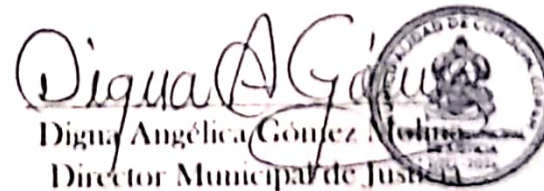 Digna A Góm
Digna Angélica Gómez Molina
Director Municipal de Justicia